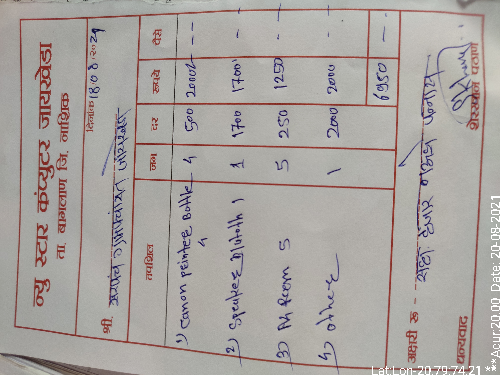 न्यु स्टार कंप्युटर जायखेडा
ता. बागलाण जि. नाशिक
दिनांक 18 08 2021
श्री. सरपंच ग्रामपंचायत जायखेडा
तपशिल नग दर रूपये पैसे
1) Canon Printer Bottle 4 500 2000 --
4
2) Speaker Blutoth 1 1 1700 1700 --
3) Ph Room 5 5 250 1250 --
4) other 1 2000 2000 --
6950 --
अक्षरी रू -
धन्यवाद
Lat Lon:20.79,74.21 ***Acur:20.00 Date: 20-08-2021